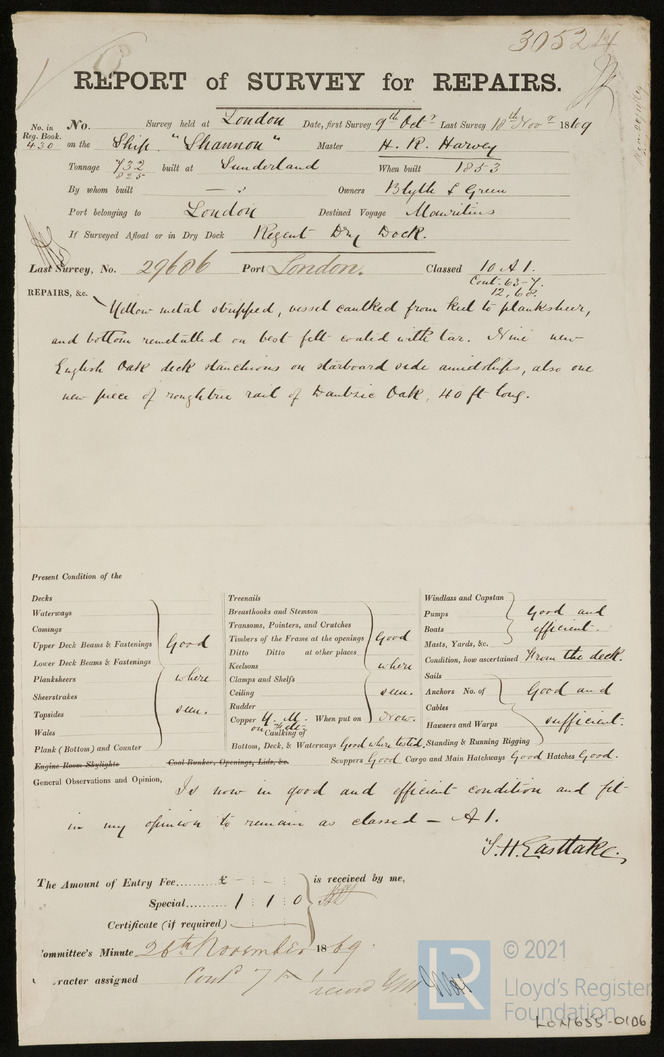 30524
REPORT of SURVEY for REPAIRS.
No. in Reg. Book. 430
No. Survey held at London Date, first Survey 9th Octr Last Survey 18th Novr 1869
on the Ship "Shannon" Master H. R. Harvey
Tonnage 732 built at Sunderland When built 1853
825
By whom built — Owners Blyth & Green
Port belonging to London Destined Voyage Mauritius
If Surveyed Afloat or in Dry Dock Regent Dry Dock.
Last Survey, No. 29606 Port London. Classed 10 A 1.
Cont. 63-7.
12, 68.
REPAIRS, &c. Yellow metal stripped, vessel caulked from keel to planksheer,
and bottom remetalled on best felt coated with tar. Nine new
English Oak deck stanchions on starboard side amidships, also one
new piece of roughtree rail of Dantzic Oak, 40 ft long.
Present Condition of the
Decks
Waterways
Comings
Upper Deck Beams & Fastenings
Lower Deck Beams & Fastenings
Planksheers
Sheerstrakes
Topsides
Wales
Plank (Bottom) and Counter
Good
where
seen.
Engine Room Skylights Coal Bunker, Openings, Lids, &c.
Treenails
Breasthooks and Stemson
Transoms, Pointers, and Crutches
Timbers of the Frame at the openings
Ditto Ditto at other places
Keelsons
Clamps and Shelfs
Ceiling
Rudder
Good
where
seen.
Copper Y. M. When put on Now.
on felt
Caulking of
Bottom, Deck, & Waterways Good where tested.
Windlass and Capstan
Pumps
Boats
Masts, Yards, &c.
Good and
efficient.
Condition, how ascertained From the deck.
Sails
Anchors No. of
Cables
Hawsers and Warps
Standing & Running Rigging
Good and
sufficient.
Scuppers Good Cargo and Main Hatchways Good Hatches Good.
General Observations and Opinion, Is now in good and efficient condition and fit
in my opinion to remain as classed — A 1.
T. H. Eastlake.
The Amount of Entry Fee......... £ - : - : is received by me,
Special...... 1 : 1 : 0
Certificate (if required)
Committee's Minute 26th November 1869.
racter assigned Contd 7
record
LR
© 2021
Lloyd's Register
Foundation
LON655-0106